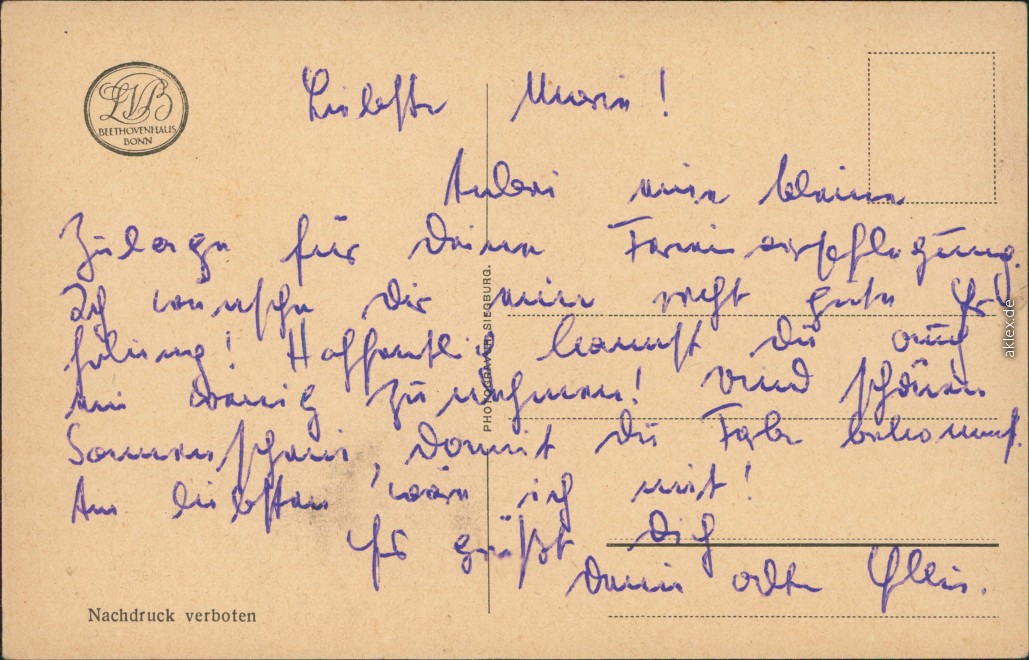 LVB
BEETHOVENHAUS
BONN
Liebste Marie!
Anbei eine kleine
Zulage für Deine Ferienverpflegung.
Ich wünsche Dir eine recht gute Er-
holung! Hoffentlich kannst Du auch
ein wenig zunehmen! Und schönen
Sonnenschein, damit Du Farbe bekommst.
Am liebsten wär ich mit!
Es grüßt Dich
Deine alte
PHOTOGRAVÜR SIEGBURG.
Nachdruck verboten
aklex.de